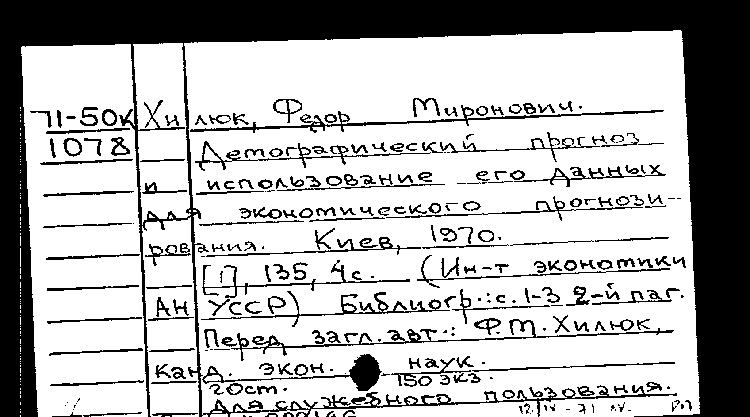 71-50к Хилюк, Федор Миронович.
1078 Демографический прогноз
и использование его данных
для экономического прогнози-
рования. Киев, 1970.
[1], 135, 4с. (Ин-т экономики
АН УССР) Библиогр.: с. 1-3 2-й паг.
Перед загл. авт.: Ф.М. Хилюк,
канд. экон. наук.
20ст. 150 экз.
Для служебного пользования.